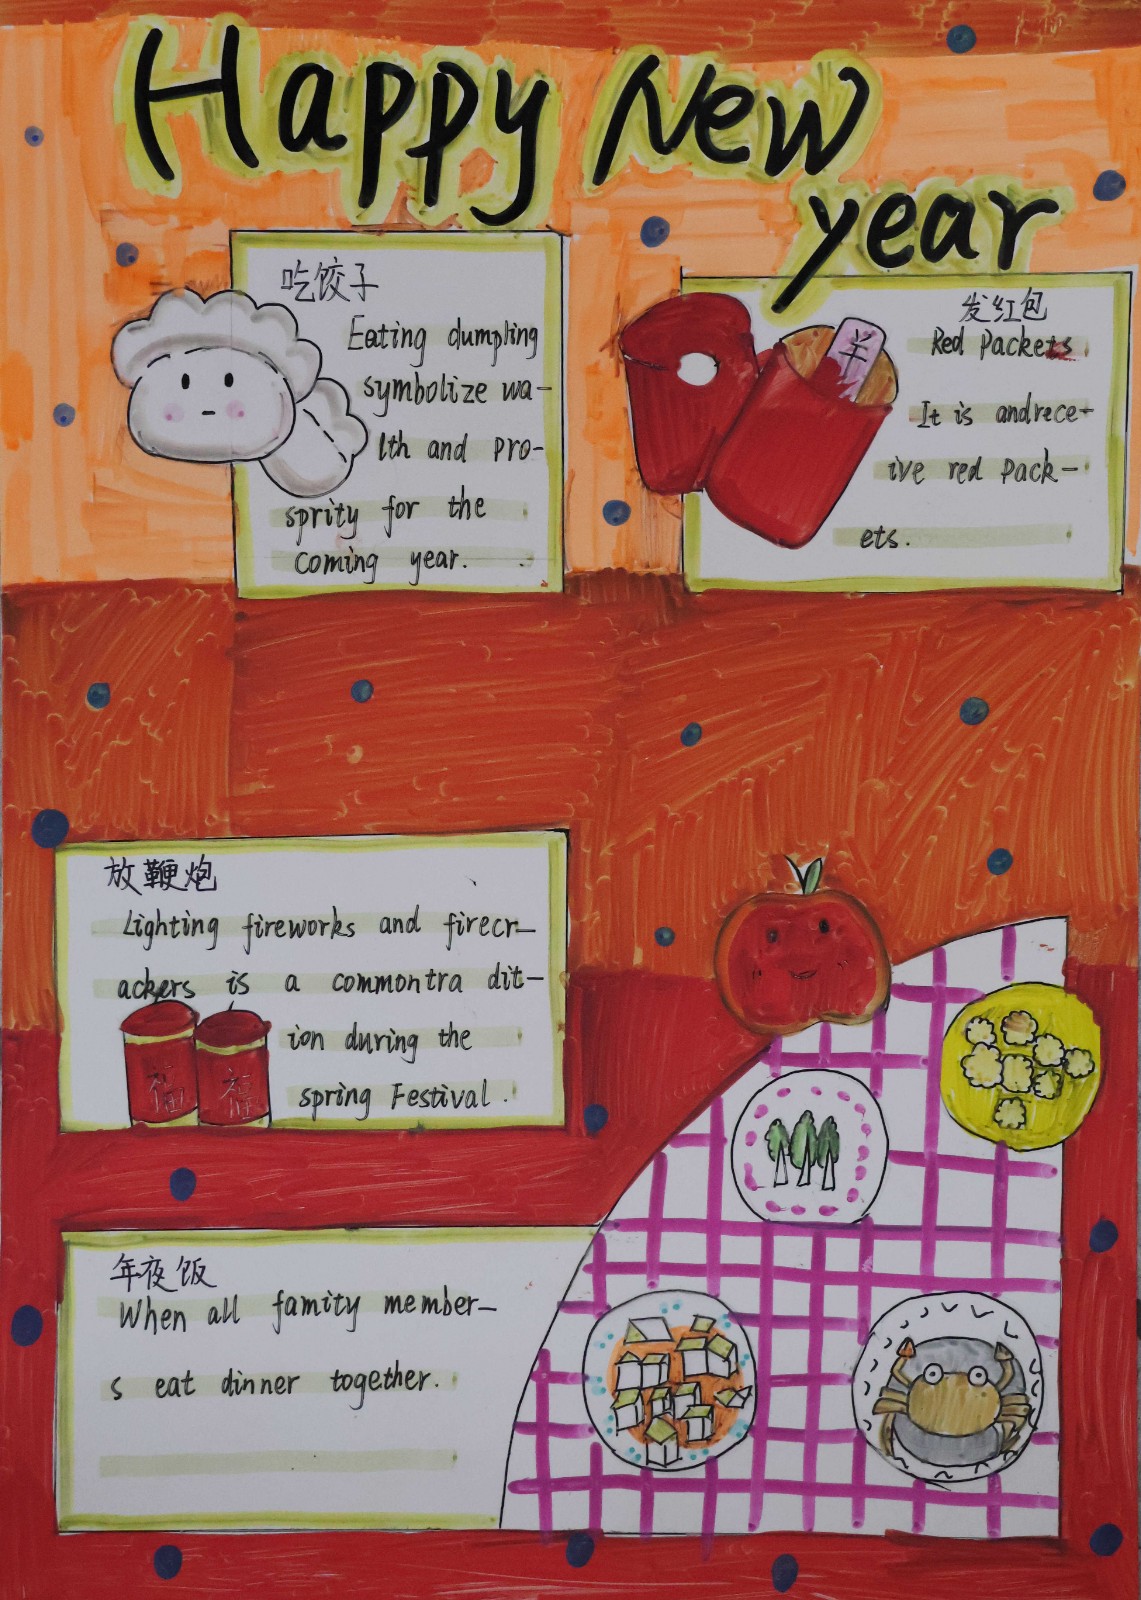 Happy New
year
吃饺子
Eating dumpling
symbolize wa-
lth and pro-
sprity for the
coming year.
发红包
Red Packets
It is andrece-
ive red pack-
ets.
羊
放鞭炮
Lighting fireworks and firecr-
ackers is a commontra dit-
ion during the
spring Festival.
福 福
年夜饭
When all famity member-
s eat dinner together.